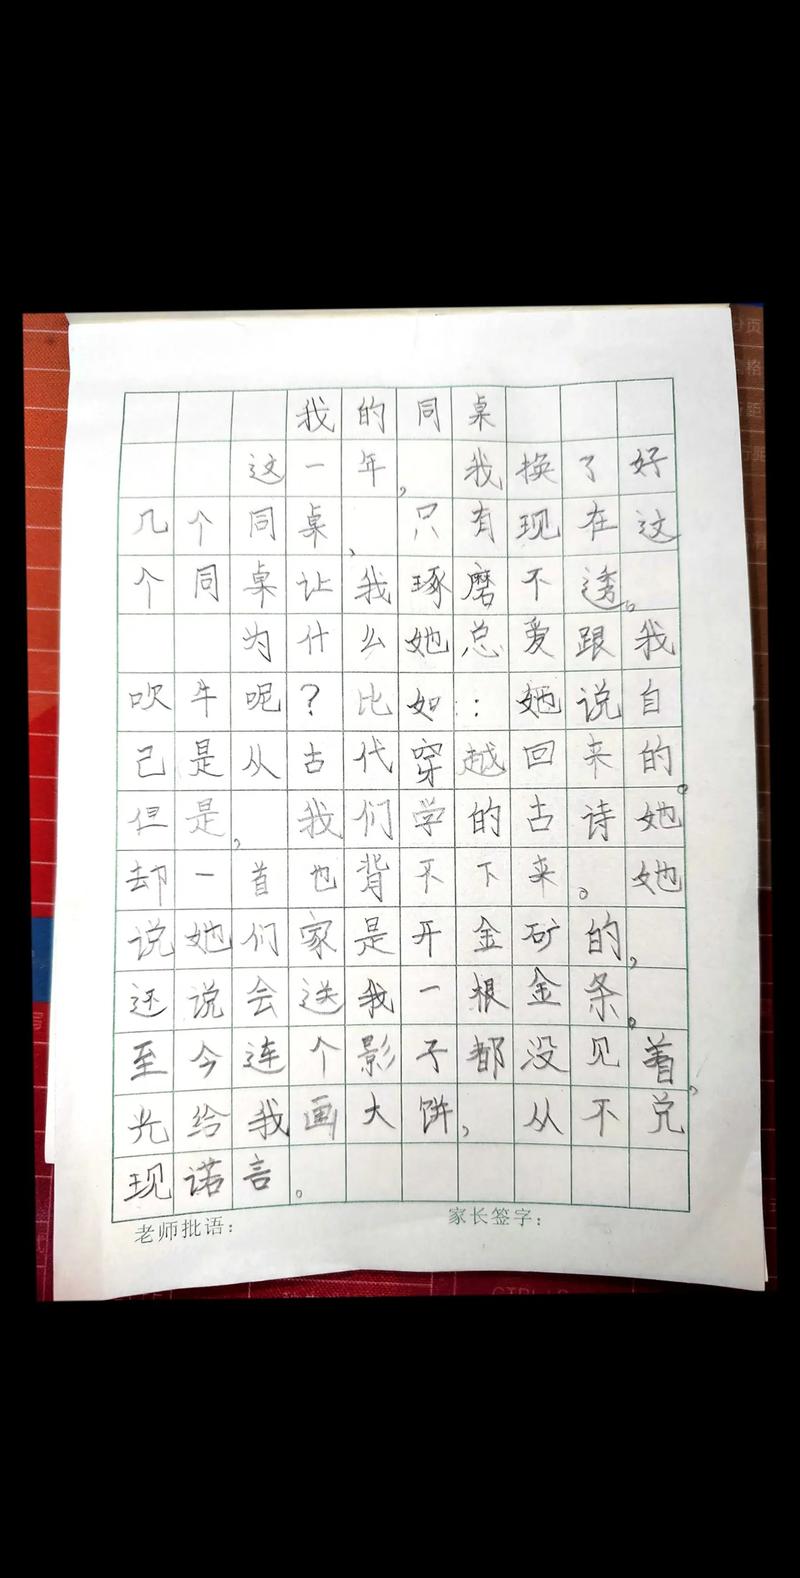 我的同桌
这一年，我换了好
几个同桌、只有现在这
个同桌让我琢磨不透。
为什么她总爱跟我
吹牛呢？比如：她说自
己是从古代穿越回来的。
但是，我们学的古诗她
却一首也背不下来。她
说她们家是开金矿的，
还说会送我一根金条。
至今连个影子都没见着，
光给我画大饼，从不兑
现诺言。
老师批语：
家长签字：